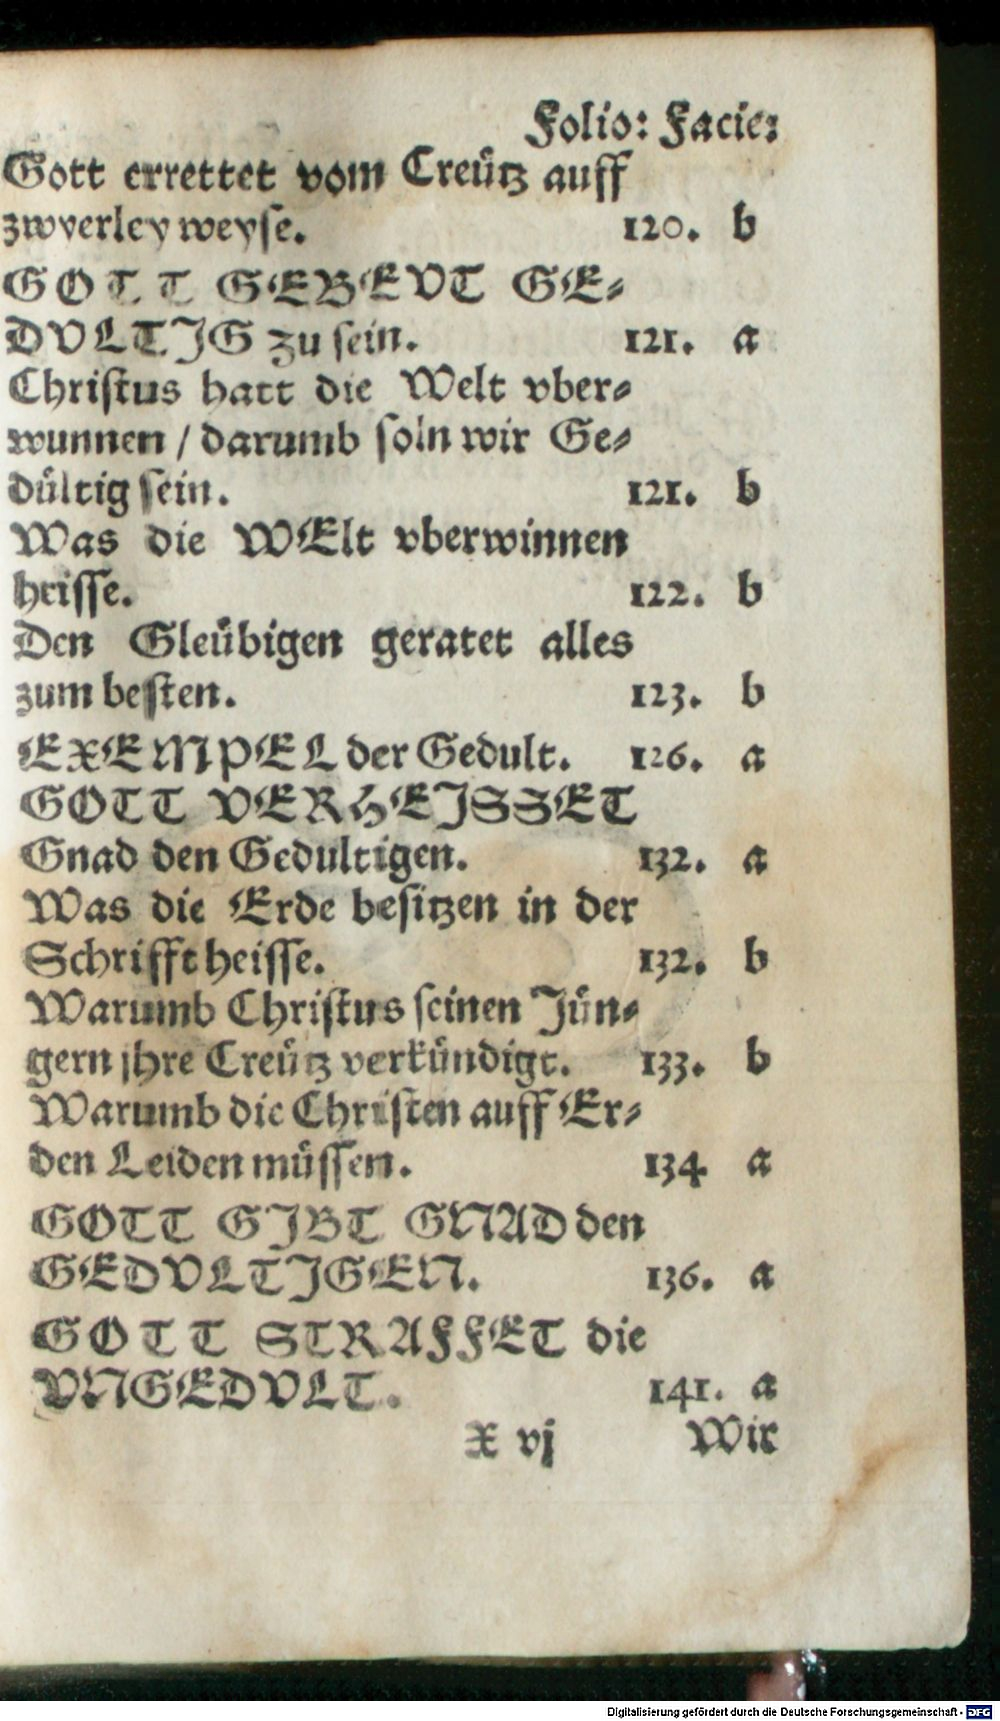 Folio: Facie:
Gott errettet vom Creütz auff
zwyerley weyse. 120. b
GOTT GEBEVT GE-
DVLTJG zu sein. 121. a
Christus hatt die Welt vber-
wunnen / darumb soln wir Ge-
dültig sein. 121. b
Was die WElt vberwinnen
heisse. 122. b
Den Gleübigen geratet alles
zum besten. 123. b
EXEMPEL der Gedult. 126. a
GOTT VERHEJSSET
Gnad den Gedultigen. 132. a
Was die Erde besitzen in der
Schrifft heisse. 132. b
Warumb Christus seinen Jün-
gern jhre Creütz verkündigt. 133. b
Warumb die Christen auff Er-
den Leiden müssen. 134 a
GOTT GJBT GNAD den
GEDVLTJGEN. 136. a
GOTT STRAFFET die
VNGEDVLT. 141. a
X vj Wir
Digitalisierung gefördert durch die Deutsche Forschungsgemeinschaft - DFG